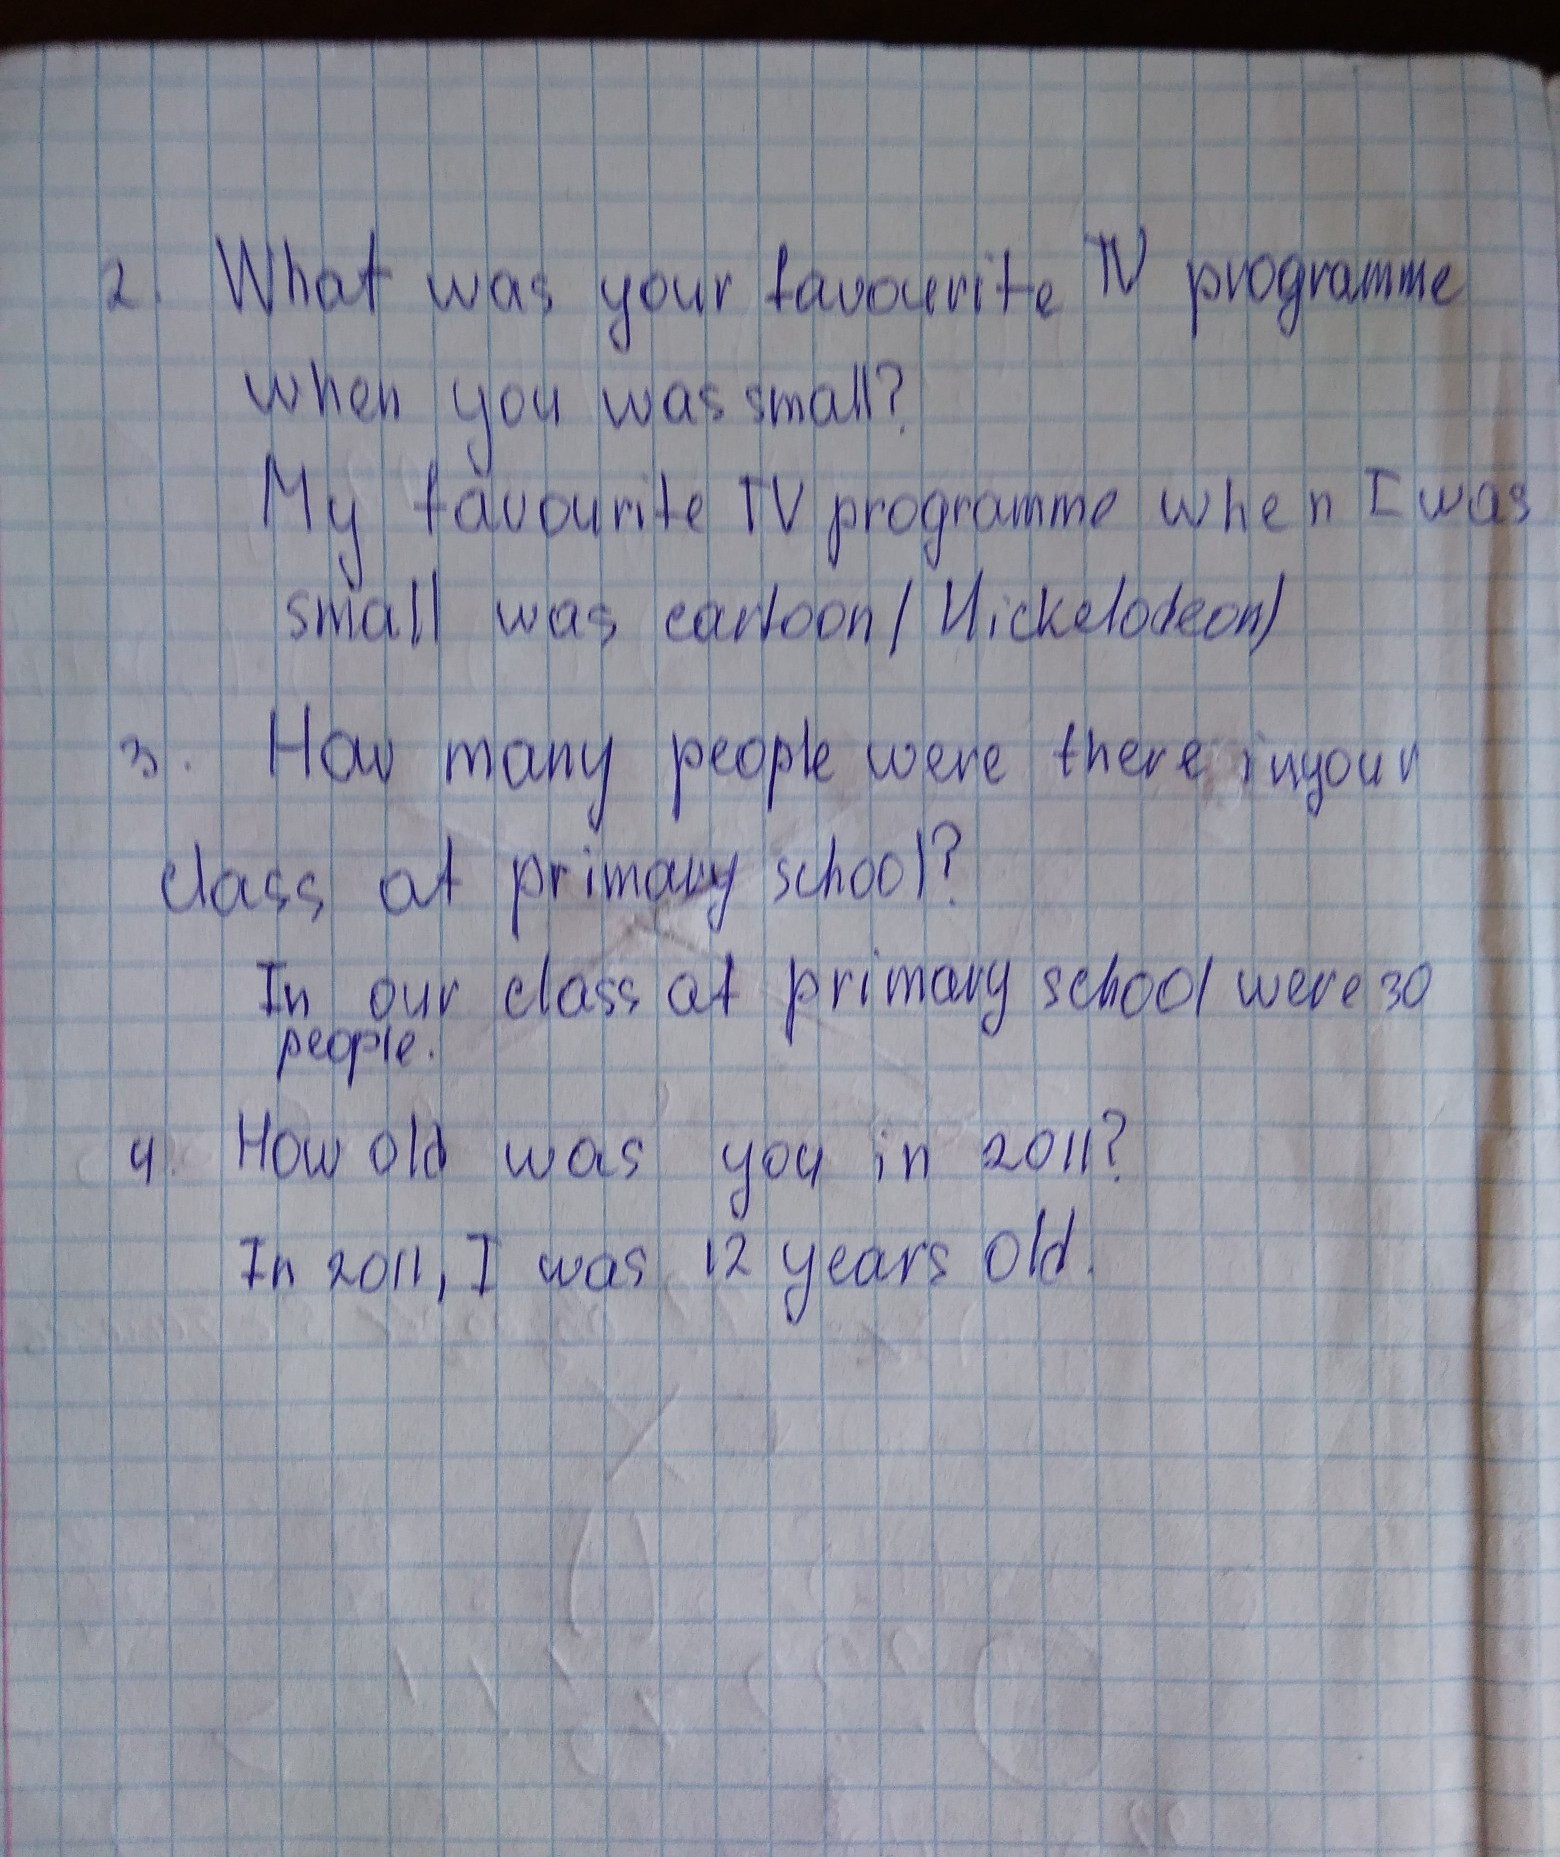 2. What was your favourite TV programme
when you was small?
My favourite TV programme when I was
small was cartoon (Nickelodeon)
3. How many people were there in your
class at primary school?
In our class at primary school were 30
people.
4. How old was you in 2011?
In 2011, I was 12 years old.